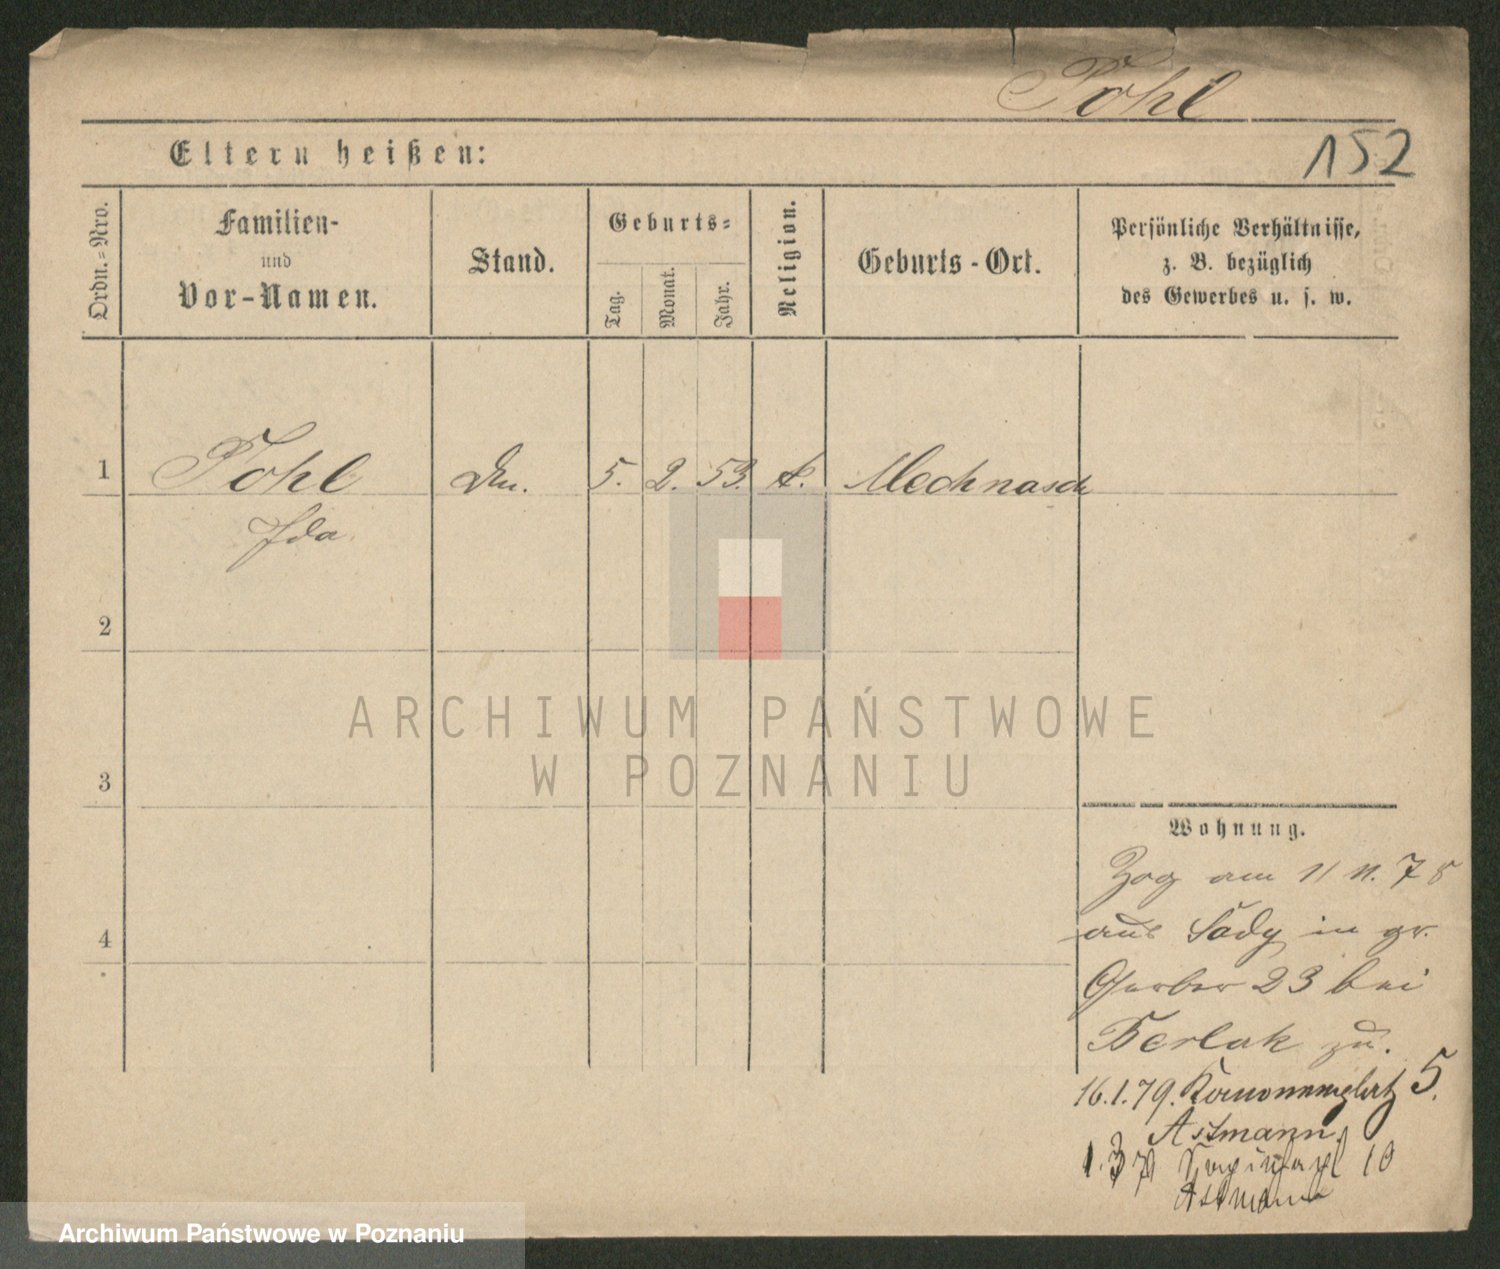 Pohl
152
Eltern heißen:
Ordn.-Nro.
Familien-
und
Vor-Namen.
Stand.
Geburts-
Tag.
Monat.
Jahr.
Religion.
Geburts-Ort.
Persönliche Verhältnisse,
z. B. bezüglich
des Gewerbes u. s. w.
1 Pohl 5. 2. 53. k. Mechnasch
Ida
2
3
4
ARCHIWUM PAŃSTWOWE
W POZNANIU
Wohnung.
Zog am 11 11. 78
aus Sady in gr.
Gerber 23 bei
Berlak zu.
16.1.79. 5.
Assmann
1.3 79 10
Assmann
Archiwum Państwowe w Poznaniu